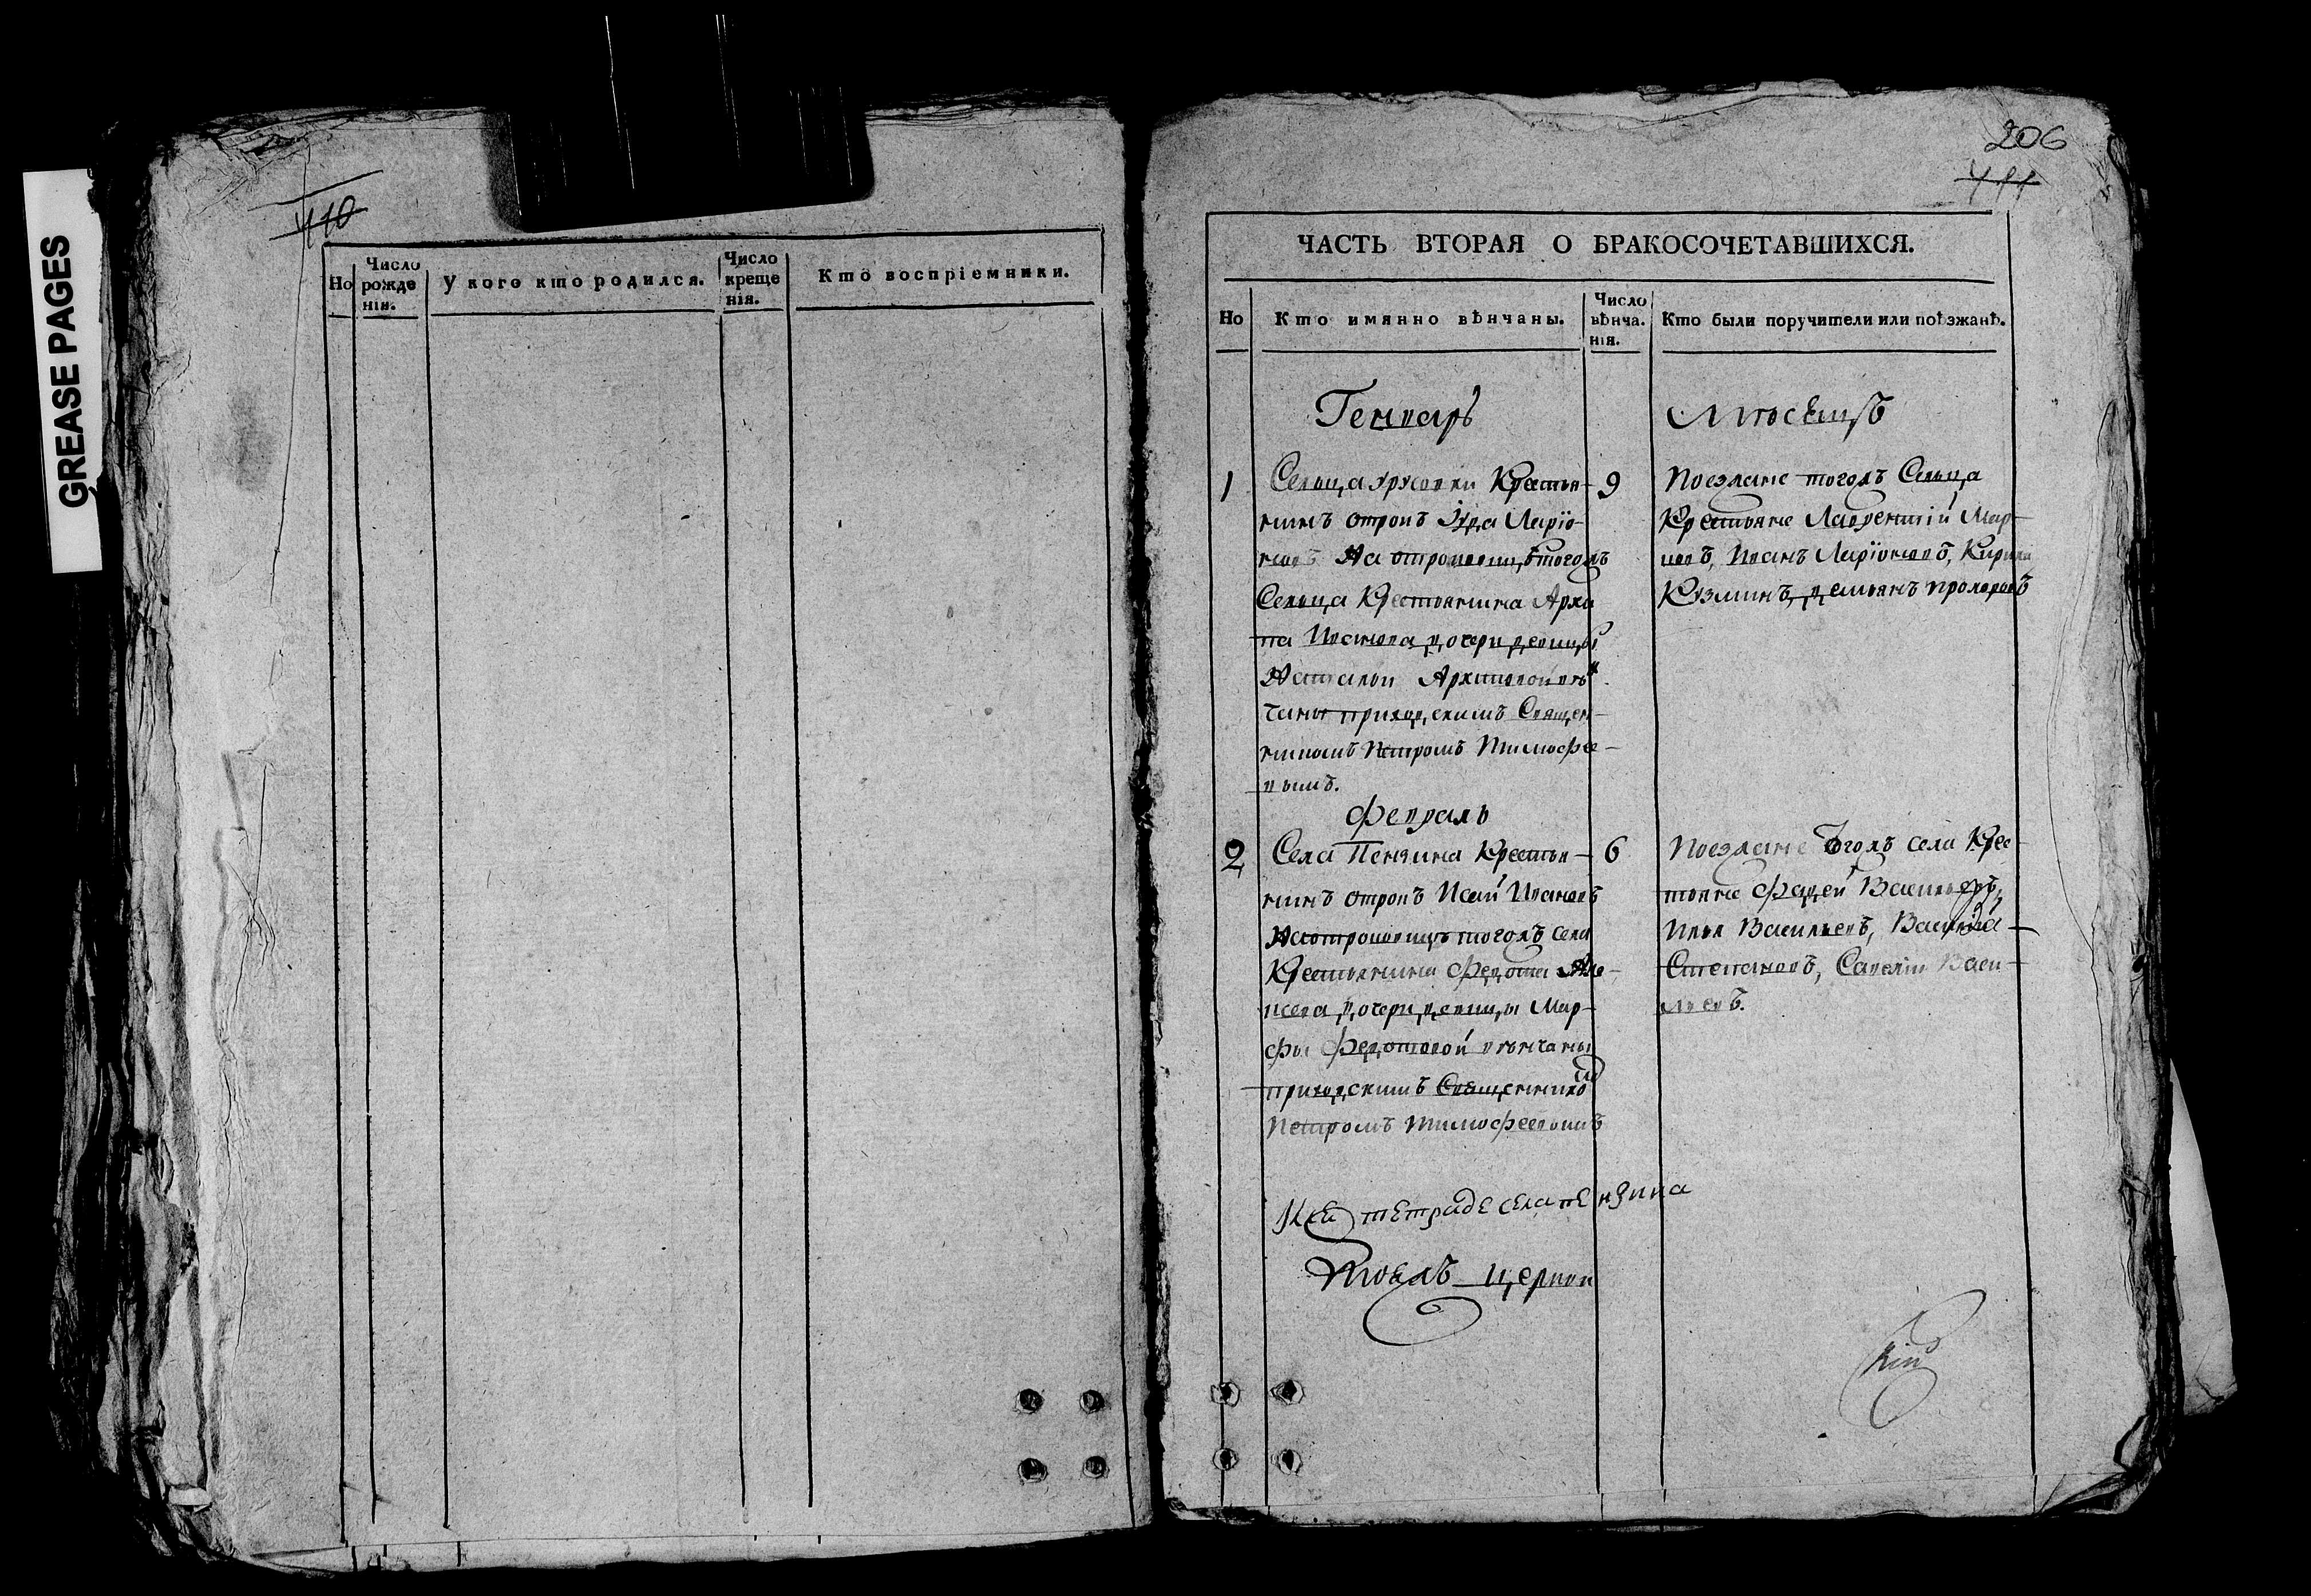 GREASE PAGES
410
Но
Число рожденія.
У кого кто родился.
Число крещенія.
Кто воспріемники.
206
411
ЧАСТЬ ВТОРАЯ О БРАКОСОЧЕТАВШИХСЯ.
Но
Кто имянно вѣнчаны.
Число вѣнча.нія.
Кто были поручители или поѣзжанѣ.
Генварь
Мѣсецъ
1
Сельца Крестья-
нинъ отрокъ Ларїо-
новъ На отроковицѣ тогожъ
Сельца Крестьянина Архи
па Иванова дочери девицы
Натальи Архиповой вѣ
чаны приходскимъ Священ-
никомъ Петромъ Тимофее-
вымъ.
9
Поезжане тогожъ Сельца
Крестьяне Лаврентїй Мар-
ковъ, Иванъ Ларїоновъ, Кирила
Кузминъ, демьянъ прохоровъ
Февраль
2
Села Пензина Крестья-
нинъ отрокъ Исай Ивановъ
На отроковицѣ тогожъ села
Крестьянина Федота Але-
ксева дочери девицы Мар-
фы Федотовой вѣнчаны
приходскимъ Священнико
м
Петромъ Тимофеевымъ
6
Поезжане тогожъ села Крес-
тьяне Фадей Васильевъ,
Илья Васильевъ, Василїй
Степановъ, Савелїи Васи-
льевъ.
К сей тетраде села пензина
тоежъ церкви